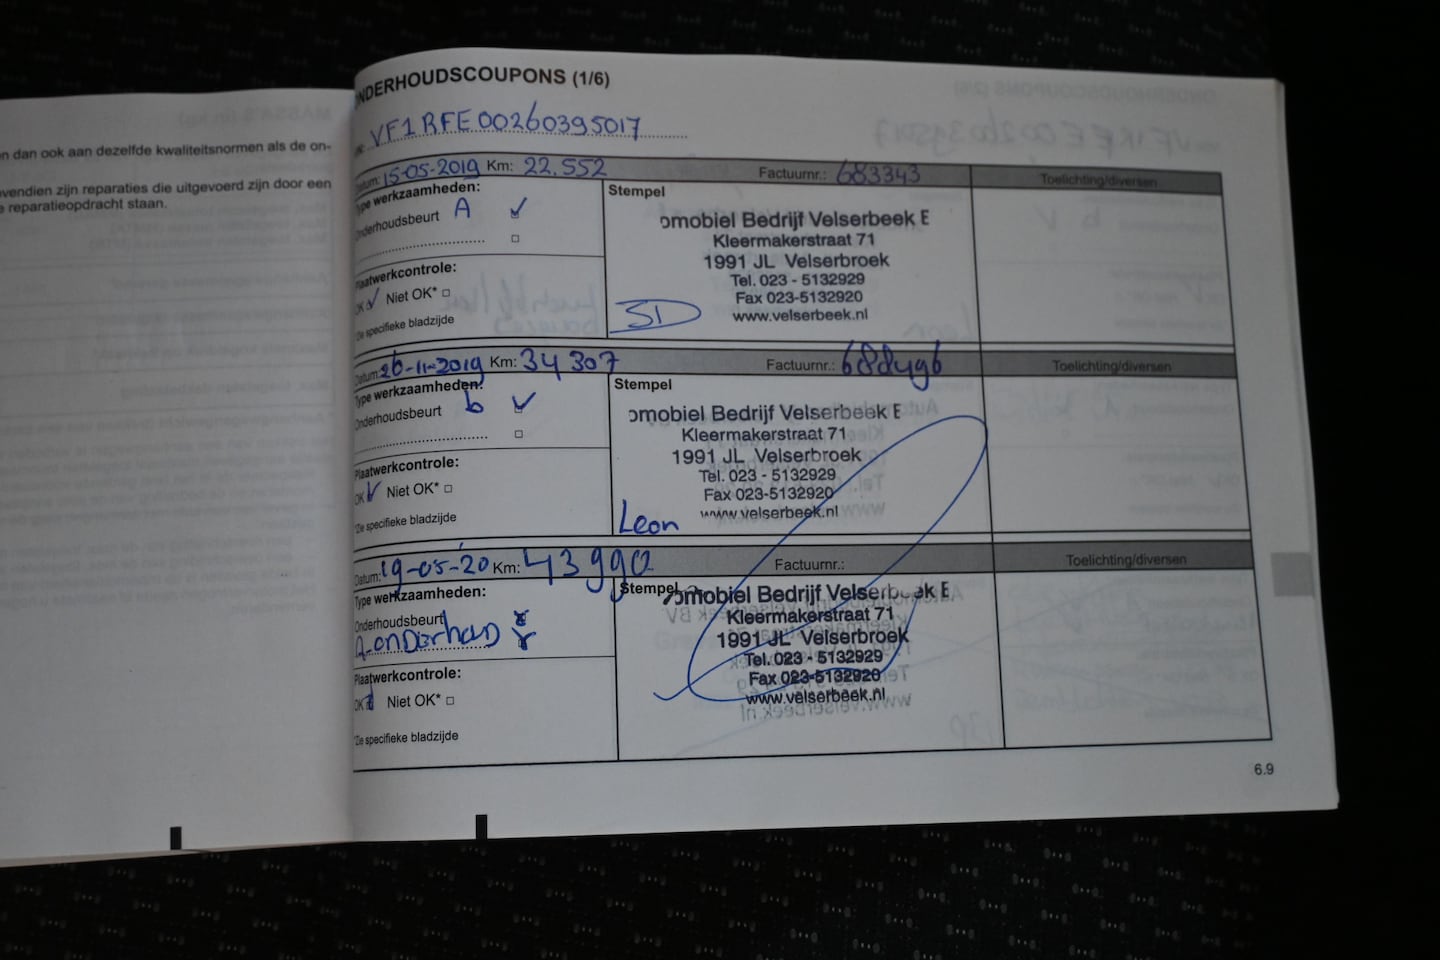 n dan ook aan dezelfde kwaliteitsnormen als de on-
vendien zijn reparaties die uitgevoerd zijn door een
e reparatieopdracht staan.
ONDERHOUDSCOUPONS (1/6)
VF1RFE00260395017
Datum: 15-05-2019 Km: 22.552 Factuurnr.: 683343 Toelichting/diversen
Type werkzaamheden:
Onderhoudsbeurt A
Stempel
omobiel Bedrijf Velserbeek B
Kleermakerstraat 71
1991 JL Velserbroek
Tel. 023 - 5132929
Fax 023-5132920
www.velserbeek.nl
Plaatwerkcontrole:
OK Niet OK*
*Zie specifieke bladzijde
Datum: 26-11-2019 Km: 34307 Factuurnr.: 688496 Toelichting/diversen
Type werkzaamheden:
Onderhoudsbeurt b
Stempel
omobiel Bedrijf Velserbeek B
Kleermakerstraat 71
1991 JL Velserbroek
Tel. 023 - 5132929
Fax 023-5132920
www.velserbeek.nl
Leon
Plaatwerkcontrole:
OK Niet OK*
*Zie specifieke bladzijde
Datum: 19-05-'20 Km: 43990 Factuurnr.: Toelichting/diversen
Type werkzaamheden:
Onderhoudsbeurt
A-onderhoud
Stempel
omobiel Bedrijf Velserbeek B
Kleermakerstraat 71
1991 JL Velserbroek
Tel. 023 - 5132929
Fax 023-5132920
www.velserbeek.nl
Plaatwerkcontrole:
OK Niet OK*
*Zie specifieke bladzijde
6.9